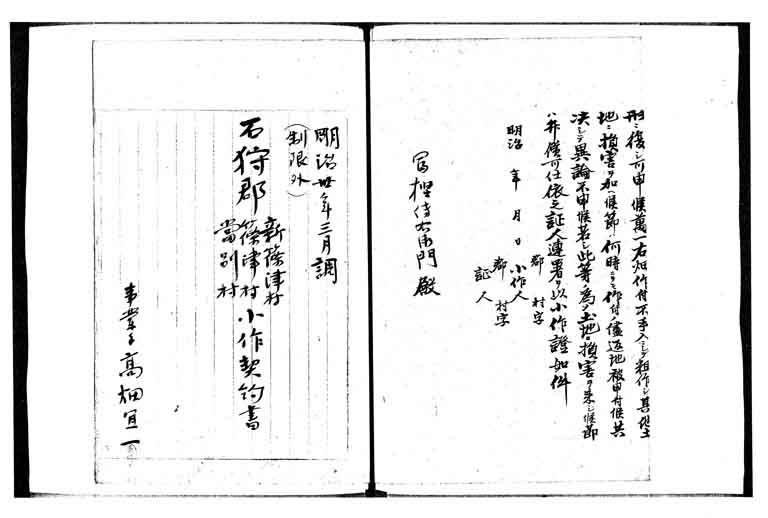 形ニ復シ可申候萬一右畑作付不手入ニシテ粗作シ其他土
地ニ損害ヲ加ヘ候節ハ何時ニテモ作付ノ儘返地被申付候共
决シテ異論不申候若シ此等ノ為メ土地ニ損害ヲ来シ候節
ハ弁償可仕依之証人連署ヲ以小作證如件
明治 年 月 日
郡 村字
小作人
郡 村字
証人
右衛門殿
明治卅年三月調
(制限外)
石狩郡
新篠津村
篠津村
當別村
小作契約書
事業手 高畑宜一